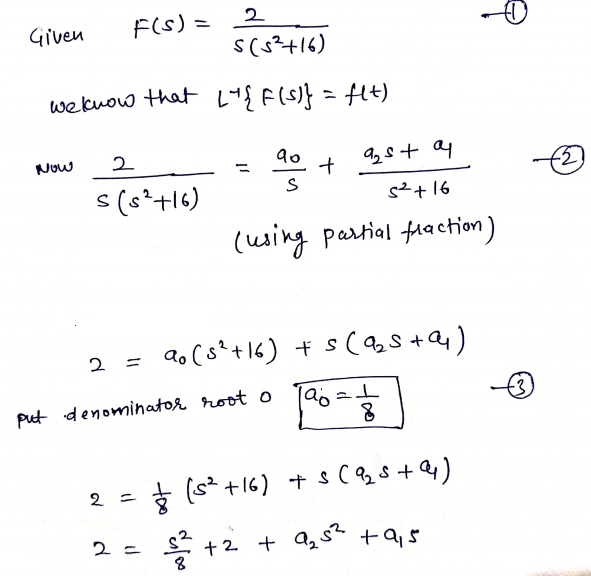 Given F(s) = 2 / s(s²+16) —①
we know that L⁻¹{F(s)} = f(t)
Now 2 / s(s²+16) = a₀/s + (a₂s + a₁) / (s²+16) —②
(using partial fraction)
2 = a₀(s²+16) + s(a₂s + a₁)
put denominator root 0 a₀ = 1/8 —③
2 = 1/8 (s²+16) + s(a₂s + a₁)
2 = s²/8 + 2 + a₂s² + a₁s